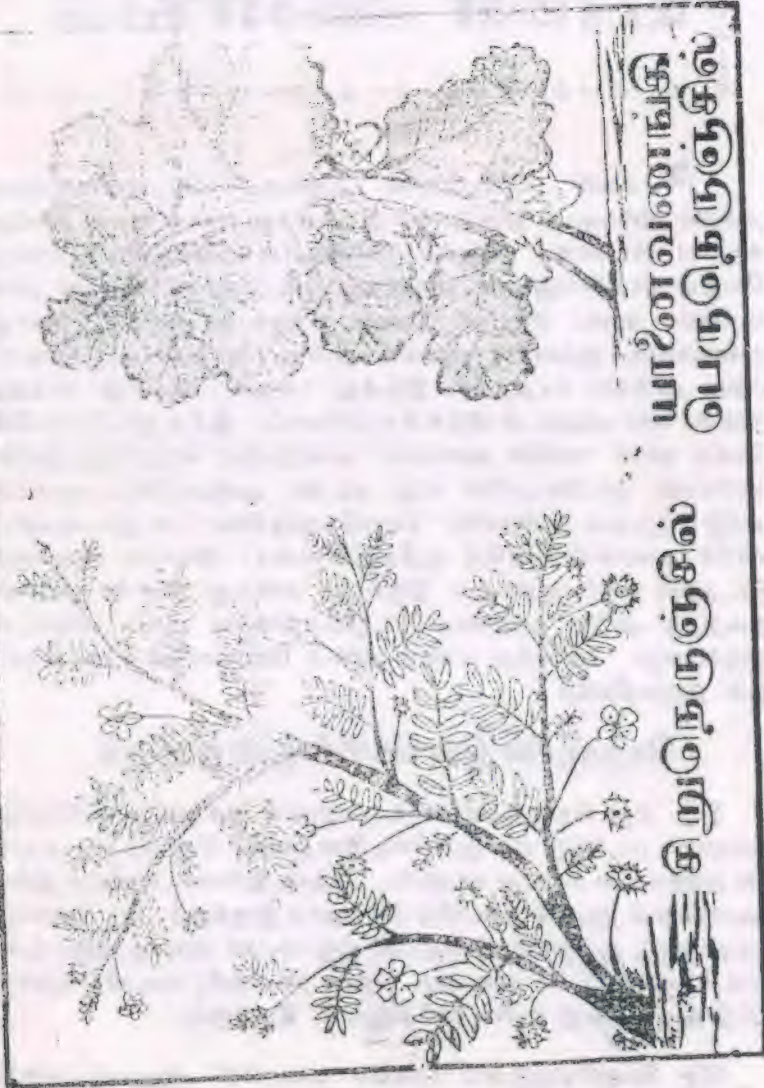 சிறுநெருஞ்சில்
யானைவணங்கி
பெருநெருஞ்சில்